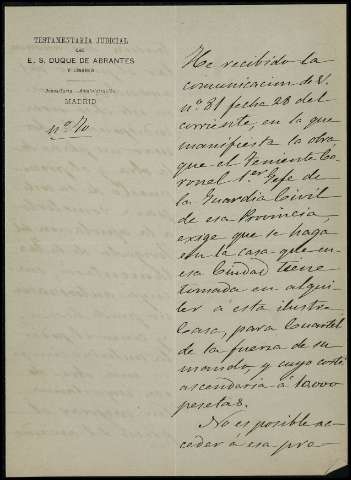 TESTAMENTARIA JUDICIAL
DEL
E. S. DUQUE DE ABRANTES
Y LINARES
MADRID
nº 70
He recibido la
comunicacion de V.
nº 81 fecha 28 del
corriente, en la que
manifiesta la obra
que el Teniente Co-
ronel 1.er Gefe de
la Guardia Civil
de esa Provincia,
exige que se haga
en la casa que en
esa Ciudad tiene
tomada en alqui-
ler á esta ilustre
Casa, para Cuartel
de la fuerza de su
mando, y cuyo coste
ascendaria á 1000
pesetas.
No es posible ac-
ceder á esa pre-